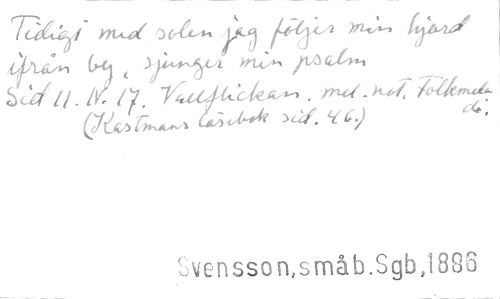 Tidigt med solen jag följer min hjord
ifrån by, sjunger min psalm
Sid 11. IV. 17. Vallflickan. mel. not. Folkmelo
di.
(Kastmans läsebok sid. 46.)
Svensson,småb.Sgb,1886